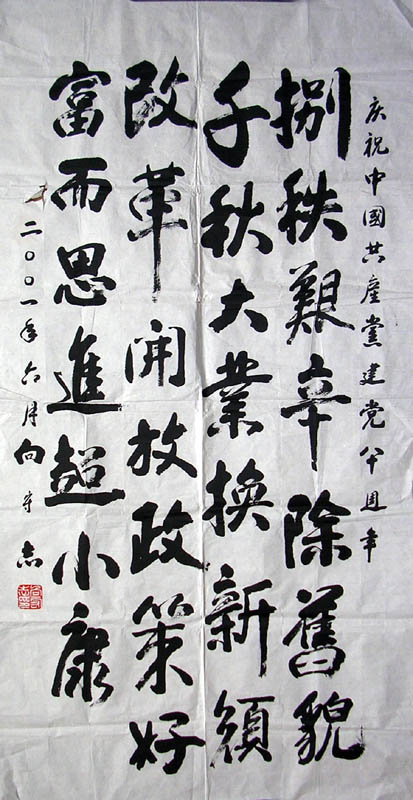 庆祝中國共產黨建党八十周年
捌秩艱辛除舊貌
千秋大業換新顏
改革開放政策好
富而思進超小康
二〇〇一年六月向守志